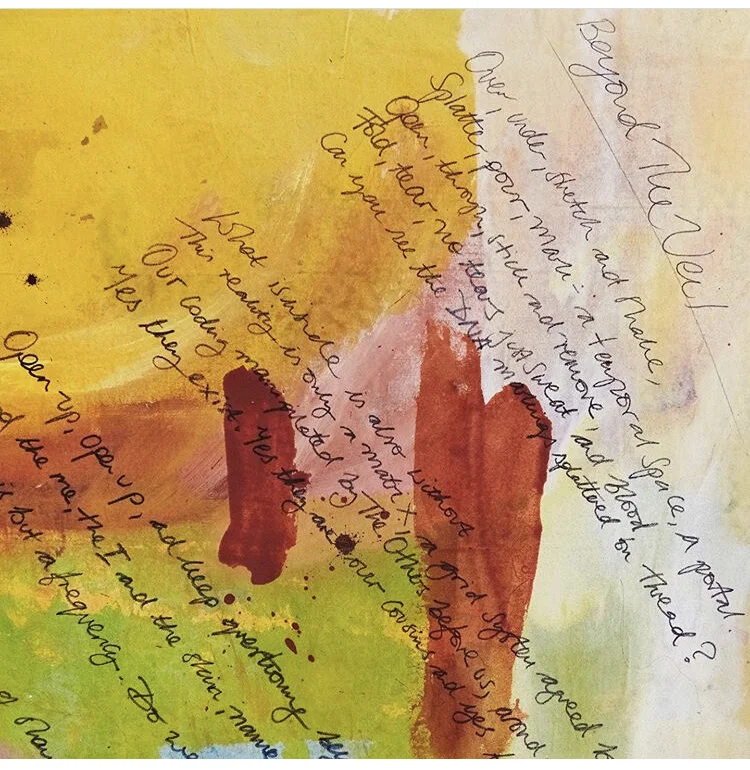 Beyond The Veil
Over, under, sketch and make,
Splatter, pour, mark - a temporal space, a portal.
Open, through, stick and remove,
Fold, tear, no tears just sweat and blood
Can you see the DNA markings splattered on thread?
What is inside is also without
This reality is only a matrix a grid system agreed
Our coding manipulated by the 'Others' before us, around
Yes they exist. Yes they are our cousins and yes
Open up, open up, and keep questioning
the me, the I and the skin, name
but a frequency. Do we